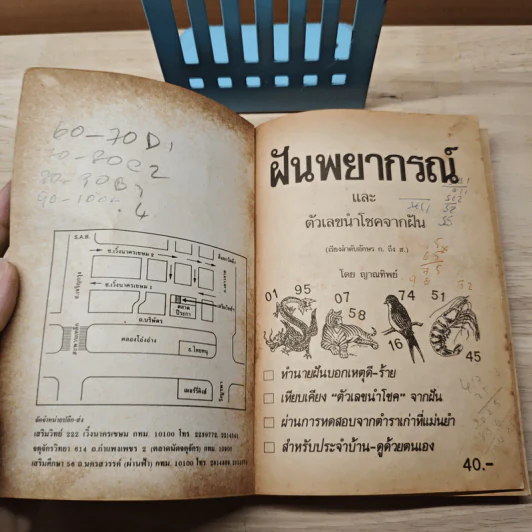 60-70 D,
80-90 B
90-100
4
ถ.เจริญกรุง
ถ.เวิ้งนาครเขษม 2
ถ.เวิ้งนาครเขษม 1
ตลาด
ปีระกา
ถ.บริพัตร
สะพานเหล็ก
คลองโอ่งอ่าง
ร.ไทยหนู
เมอร์รี่คิงส์
จัดจำหน่ายปลีก-ส่ง
เสริมวิทย์ 222 เวิ้งนาครเขษม กทม. 10100 โทร.
จตุจักรวิทยา 614 ถ.กำแพงเพชร 2 (ตลาดนัดจตุจักร) กทม 10900
เสริมศึกษา 56 ถ.นครสวรรค์ (ผ่านฟ้า) กทม. 10100 โทร.
ฝันพยากรณ์
และ
ตัวเลขนำโชคจากฝัน
(เรียงลำดับอักษร ก. ถึง ฮ.)
โดย ญาณทิพย์
01 95 07 58 74 16 51 45
ทำนายฝันบอกเหตุดี-ร้าย
เทียบเคียง “ตัวเลขนำโชค” จากฝัน
ผ่านการทดสอบจากตำราเก่าที่แม่นยำ
สำหรับประจำบ้าน-ดูด้วยตนเอง
40.-